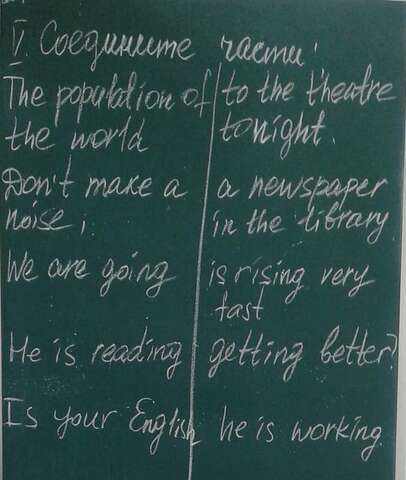 V. Соедините части:
The population of | to the theatre
the world | tonight.
Don't make a | a newspaper
noise, | in the library
We are going | is rising very
fast
He is reading | getting better?
Is your English | he is working